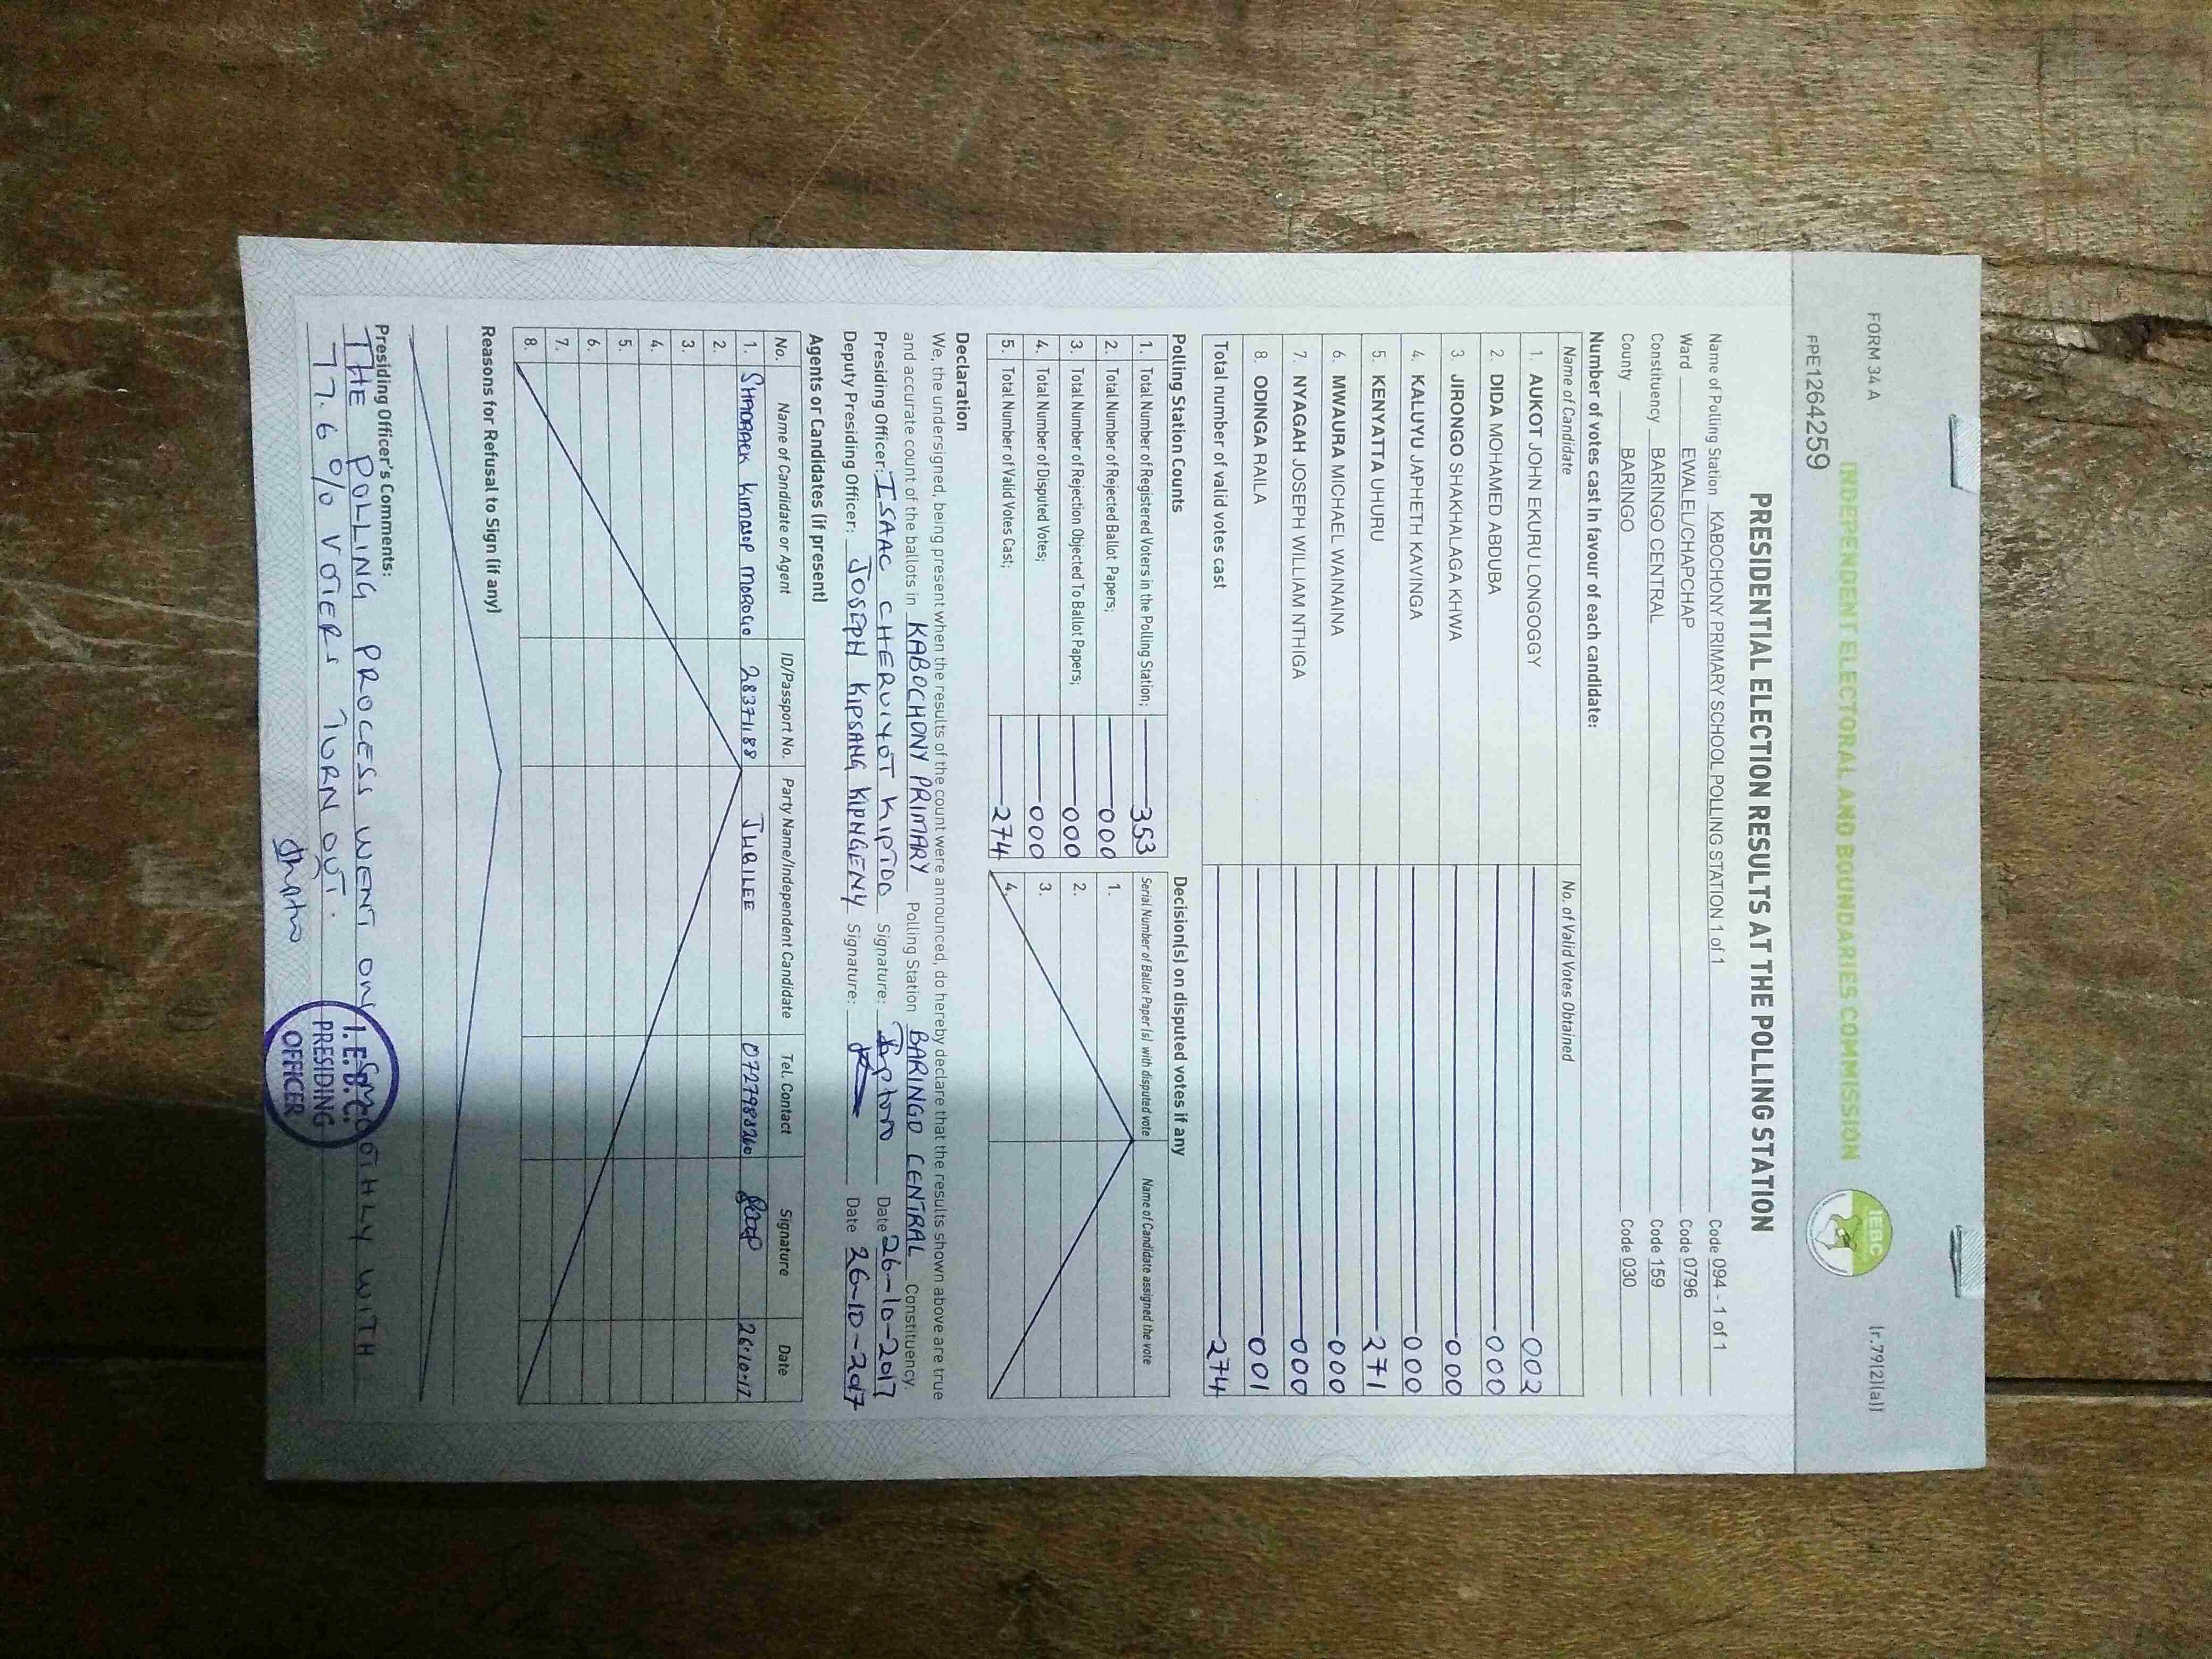 FORM 34 A
(r.79(2)(a))
INDEPENDENT ELECTORAL AND BOUNDARIES COMMISSION
IEBC
PPE1264259
PRESIDENTIAL ELECTION RESULTS AT THE POLLING STATION
Name of Polling Station KABOCHONY PRIMARY SCHOOL POLLING STATION 1 of 1 Code 094 - 1 of 1
Ward EWALEL/CHAPCHAP Code 0796
Constituency BARINGO CENTRAL Code 159
County BARINGO Code 030
Number of votes cast in favour of each candidate:
Name of Candidate No. of Valid Votes Obtained
1. AUKOT JOHN EKURU LONGOGGY 002
2. DIDA MOHAMED ABDUBA 000
3. JIRONGO SHAKHALAGA KHWA 000
4. KALUYU JAPHETH KAVINGA 000
5. KENYATTA UHURU 271
6. MWAURA MICHAEL WAINAINA 000
7. NYAGAH JOSEPH WILLIAM NTHIGA 000
8. ODINGA RAILA 001
Total number of valid votes cast 274
Polling Station Counts
1. Total Number of Registered Voters in the Polling Station; 353
2. Total Number of Rejected Ballot Papers; 000
3. Total Number of Rejection Objected To Ballot Papers; 000
4. Total Number of Disputed Votes; 000
5. Total Number of Valid Votes Cast; 274
Decision(s) on disputed votes if any
Serial Number of Ballot Paper (s) with disputed vote Name of Candidate assigned the vote
1.
2.
3.
4.
Declaration
We, the undersigned, being present when the results of the count were announced, do hereby declare that the results shown above are true
and accurate count of the ballots in KABOCHONY PRIMARY Polling Station BARINGO CENTRAL Constituency.
Presiding Officer: ISAAC CHERUIYOT KIPTOO Signature: Date 26-10-2017
Deputy Presiding Officer: JOSEPH KIPSANG KIPNGENY Signature: Date 26-10-2017
Agents or Candidates (if present)
No. Name of Candidate or Agent ID/Passport No. Party Name/Independent Candidate Tel. Contact Signature Date
1. SHADRACK KIMAIYO MOROGO 28371188 JUBILEE 0727988260 26.10.17
2.
3.
4.
5.
6.
7.
8.
Reasons for Refusal to Sign (if any)
Presiding Officer's Comments:
THE POLLING PROCESS WENT ON SMOOTHLY WITH
77.6 % VOTERS TURN OUT.
I.E.B.C.
PRESIDING
OFFICER